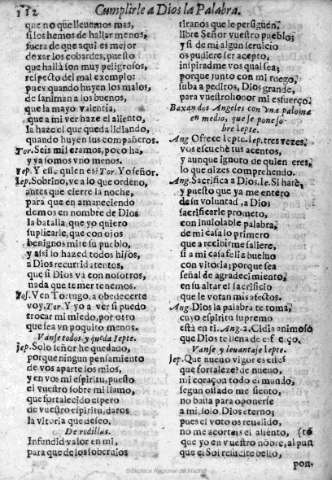 112 Cumplirle a Dios la Palabra.
que no lleuemos mas,
si los hemos de hallar menos,
fuera de que aqui es mejor
dexar los cobardes, puesto
que hallã son muy peligrosos,
respecto del mal exemplo:
pues quando huyen los malos,
desaniman a los buenos,
que la mayor valentia,
que a mi ver haze el aliento,
la haze el que queda lidiando,
quando huyen sus compañeros.
Tor. Seis mil eramos, poco ha,
y ya somos vno menos.
Jep. Y esse quien es? Tor. Yo señor.
Jep. Sobrino, ve a lo que ordeno,
antes que cierre la noche,
para que en amaneciendo
demos en nombre de Dios
la batalla, que yo quiero
suplicarle, que con ojos
benignos mire su pueblo,
y assi lo hazed todos hijos,
a Dios recurrid atentos,
que si Dios va con nosotros,
nada que temer tenemos.
Jos. Ven Tortugo, a obedecerte
voy. Tor. Y yo a ver si puedo
trocar mi miedo, por otro
que sea vn poquito menos.
Vanse todos y queda Jepte.
Jep. Solo señor he quedado,
porque ningun pensamiento
de vos aparte los mios,
y en vos mi espiritu puesto
el vuestro sobre mi llamo,
que fortalecido espero
de vuestro espiritu, daros
la vitoria que desseo.
De rodillas.
Infundid valor en mi,
para que de los soberuios
tiranos que le persiguen,
libre Señor vuestro pueblo;
y si de mi algun seruicio
os pudiere ser acepto,
inspiradme vos qual sea;
porque junto con mi ruego,
suba a pediros, Dios grande,
para vuestro honor mi esfuerço.
Baxan dos Angeles con vna paloma
en medio, que se pone sobre
Iepte.
Ang. Ofrece Iepte, Iep. tres vezes,
vos escuche tus acentos,
y aunque ignoro de quien eres,
lo que dizes comprehendo.
Ang. Sacrifica a Dios. Ie. Si harè,
y puesto que ya me entero
de su voluntad, a Dios
sacrificarle prometo,
con inuiolable palabra,
de mi casa lo primero
que a recibirme saliere,
si a mi casa fiel bueluo
con vitoria; porque sea
señal de agradecimiento,
en su altar el sacrificio
que le votan mis afectos.
Ang. Dios la palabra te toma,
cuyo espiritu supremo
està en ti. Ang. 2. Lidia animoso
que Dios te llena de esfuerço.
Vanse y leuantase Iepte.
Jep. Que nueuo vigor es este
que fortaleze de nueuo,
mi coraçon todo el mundo,
segun osado me siento,
no basta para oponerle
a mi, solo Dios eterno;
pues el voto es resuelto,
no me acortes el aliento,
que yo en vuestro nombre, al punto
que el Sol reduzite bello,
pon-
Biblioteca Regional de Madrid